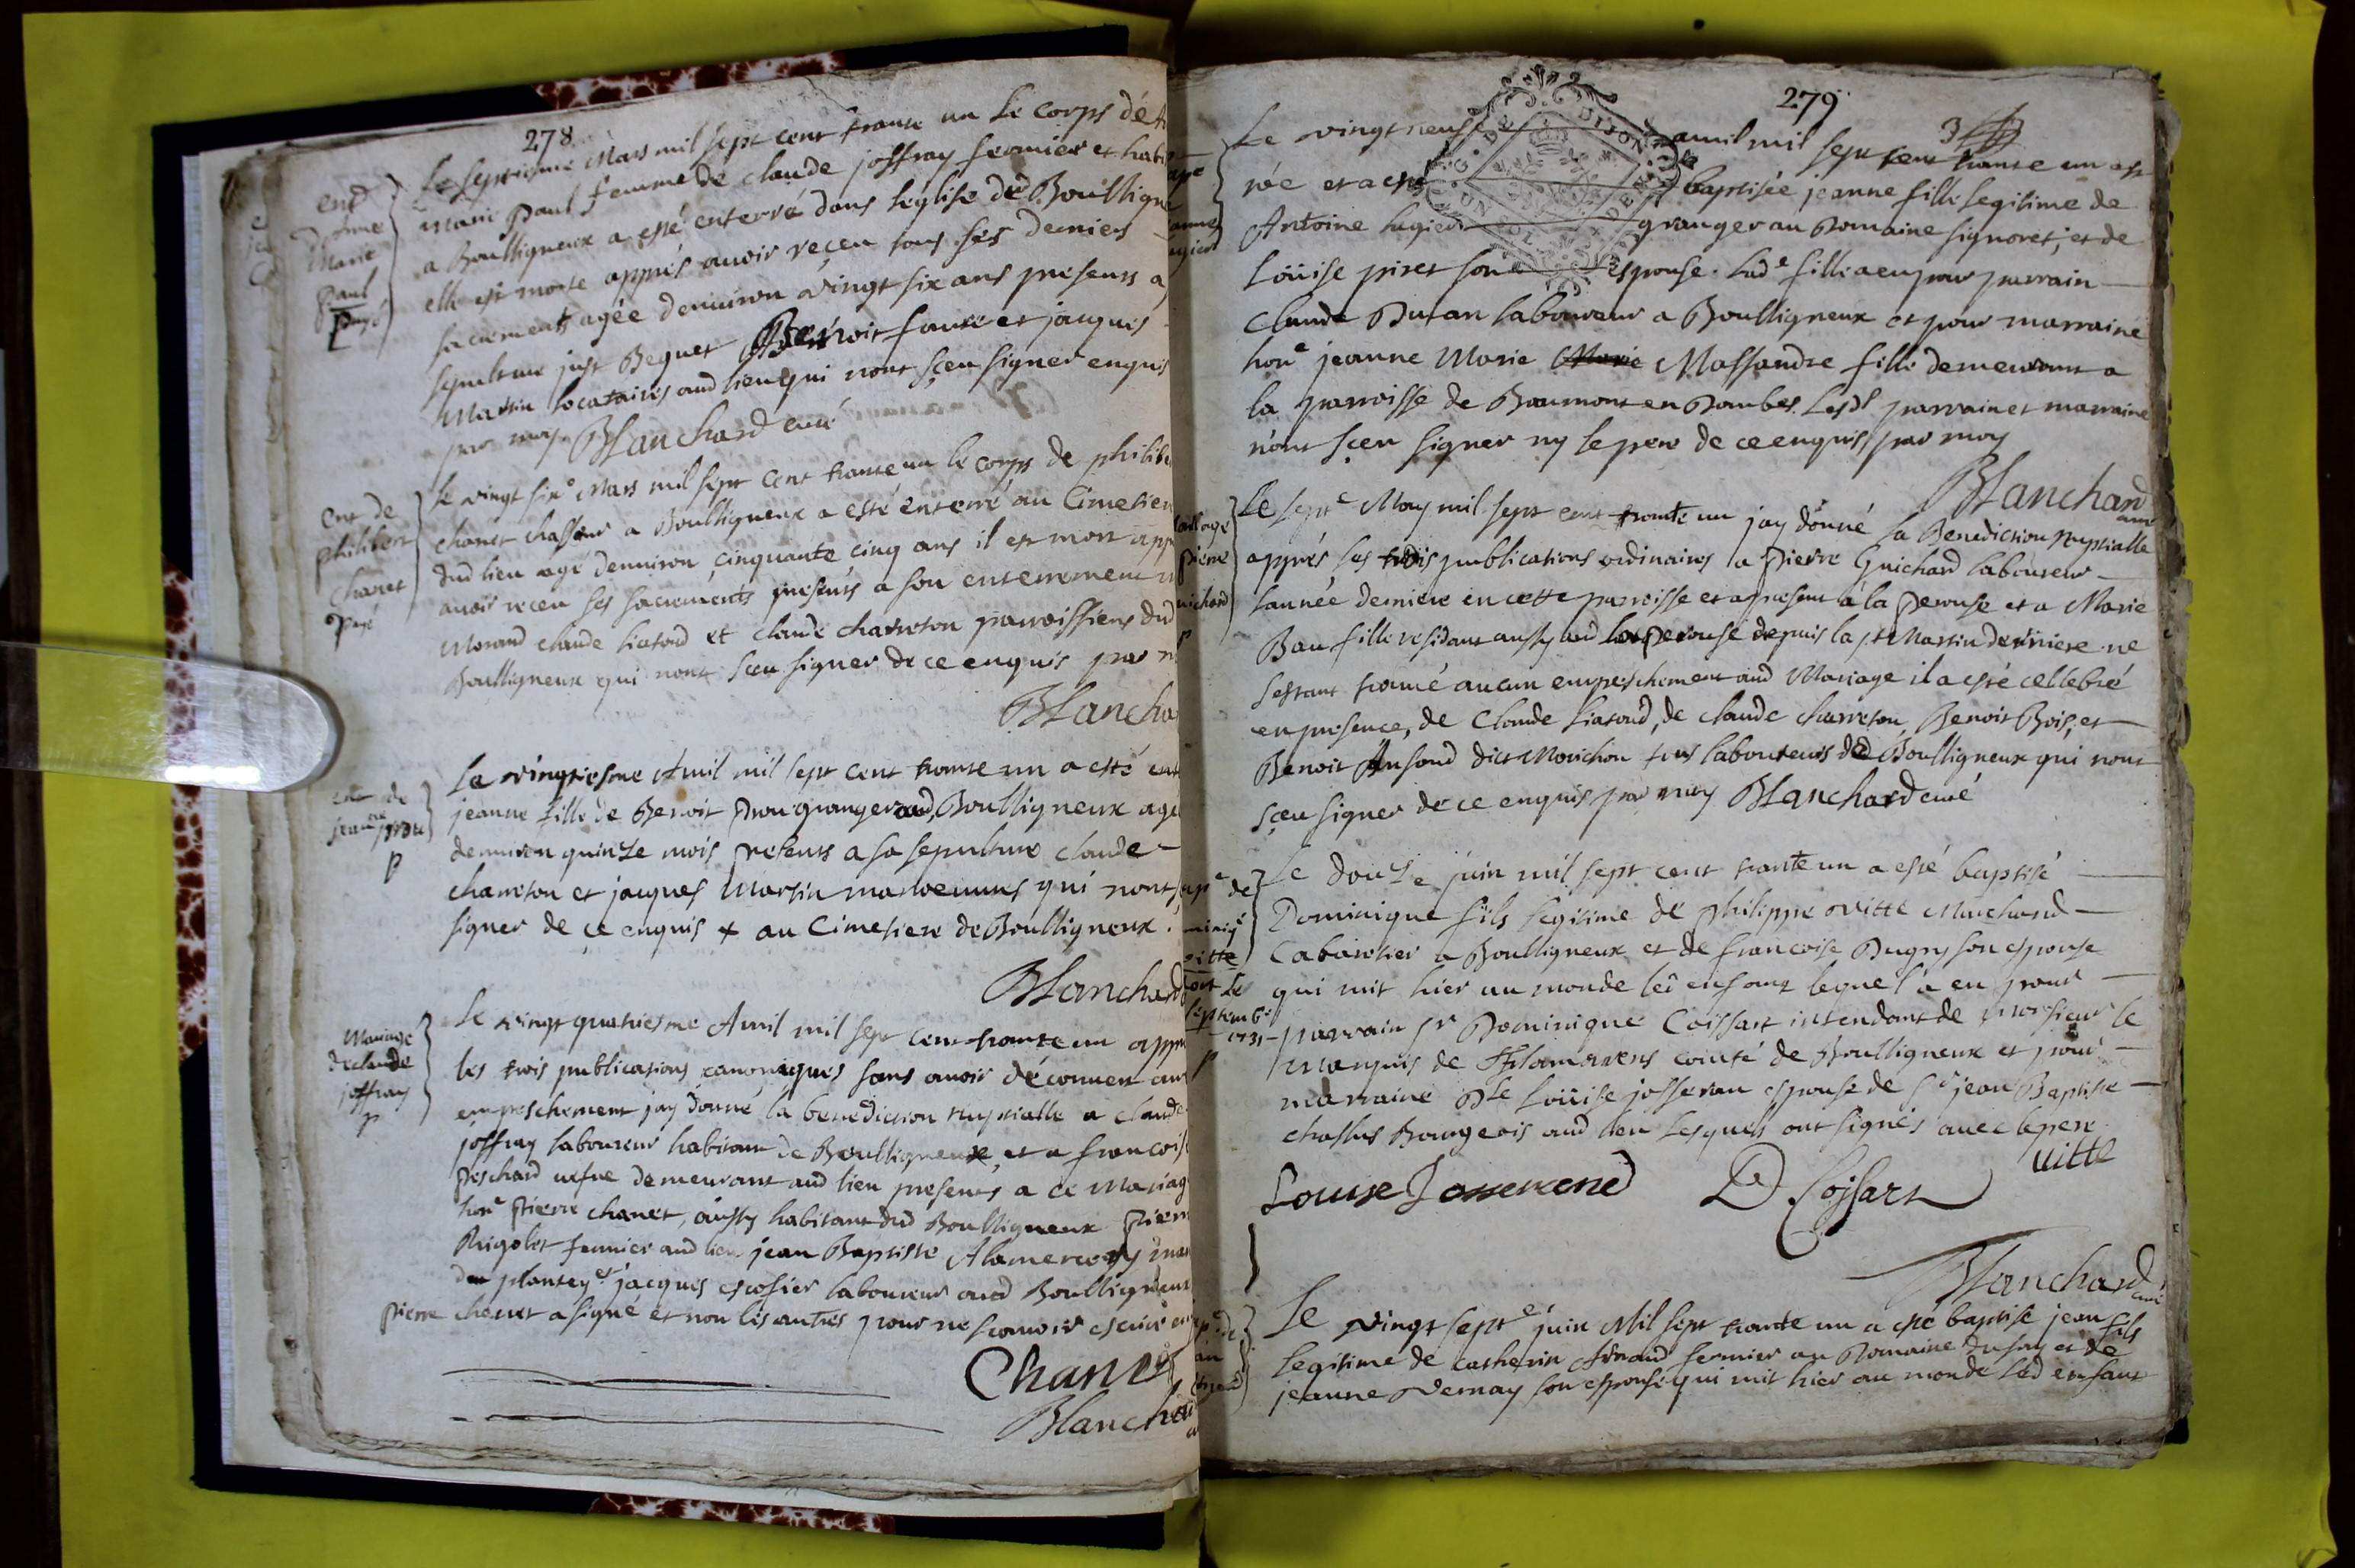 278
ent
d'Anne
Marie
Paul
payé
Le septieme Mars mil sept cent trante un Le corps d'
marie Paul femme de claude joffray fermier et habi
a Boulligneux a esté enterré dans leglise dud Boulligne
elle est morte apprés avoir reçeu tous ses derniers
sacrements agée denuiron vingt six ans presents a
sepulture just Beguet Benoit faure et jacques
Martin locataires aud lieu qui nont sçeu signer enquis
par moy Blanchard curé
ent de
philibert
chanet
payé
Le vingt six.e Mars mil sept cent trante un le corps de philibe
chanet chasseur a Boulligneux a esté enterré au Cimetier
dud lieu agé denuiron cinquante cinq ans il est mort app
auoir receu ses sacrements presents a son enterrement
Morand claude Liatoud et claude charreton parroissiens dud
Boulligneux qui nont sceu signer de ce enquis par
Blancha
ent de
jeanne prou
p
Le vingtiesme Avril mil sept cent trante un a esté ent
jeanne fille de Benoit Prou granger aud Boulligneux agé
denuiron quinze mois presents a sa sepulture claude
charreton et jacques Martin manoeuures qui nont
signer de ce enquis + au Cimetiere de Boulligneux.
Blanchard
Mariage
de claude
joffray
p
Le vingt quatriesme Avril mil sept cent trante un appr
les trois publications canoniques sans auoir découuert auc
empeschement jay donné la benediction nuptialle a claude
joffray laboureur habitant de Boulligneux, et a francois
Peschard uefue demeurant aud lieu presents a ce Mariag
hon.e Pierre chanet, aussy habitant dud Boulligneux Pierr
Rigolet fermier aud lieu jean Baptiste Alamercery
du plantey et jacques escosier laboureur aud Boulligneux
Pierre chanet a signé et non les autres pour ne scauoir escrire en
Chanet
Blanchar
279
Le vingt neuf avril mil sept cent trante un est
née et a esté baptisée jeanne fille legitime de
Antoine lugier granger au Domaine signoret, et de
Loüise piret son espouse. Lad.e fille a eu pour parrain
Claude Dufan laboureur a Boulligneux et pour marraine
hon.e jeanne Marie Marie Massandre fille demeurant a
la parroisse de Baumont en Dombes. Lesd.s parrain et marraine
n'ont sçeu signer ny le pere de ce enquis par moy
Blanchard
curé
Mariage
Pierre
Guichard
p
Le sept.e May mil sept cent trante un jay donné la Benediction Nuptialle
apprés les trois publications ordinaires a Pierre Guichard laboureur
lannée derniere en cette parroisse et a present a la Perouse et a Marie
Bau fille residant aussy aud la Perouse depuis la st Martin derniere ne
sestant trouué aucun empeschement aud Mariage il a esté cellebré
en presence, de Claude Liatoud, de claude charreton, Benoit Bois, et
Benoit Ansoud dict Morichon tous laboureurs dud Boulligneux qui nont
sçeu signer de ce enquis par moy Blanchard curé
ap.e de
vitte
mort Le
septemb.e
1731
p
Le douze juin mil sept cent trante un a esté baptisé
Dominique fils legitime de philippe vitte Marchand
Cabaretier a Boulligneux et de francoise Dugry son espouse
qui mit hier au monde led enfant lequel a eu pour
parrain s.r Dominique Coissart intendant de Monsieur le
marquis de comté de Boulligneux et pour
marraine D.le Loüise josseran espouse de s.r jean Baptiste
chaslus Bourgeois aud lieu Lesquels ont signés auec le pere
vitte
Louise Josserend D Coissart
Blanchard
curé
Le vingt sept.e juin Mil sept trante un a esté baptisé jean fils
legitime de catherin Arnaud fermier au Domaine dufay et de
jeanne Vernay son espouse qui mit hier au monde led enfant